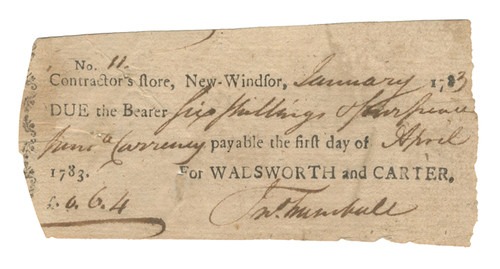 No. 11.
Contractor's store, New-Windsor, January 1783
DUE the Bearer six shillings & four pence
Penns.a Currency payable the first day of April
1783. For WADSWORTH and CARTER.
£.0.6.4 Jn.o Trumbull